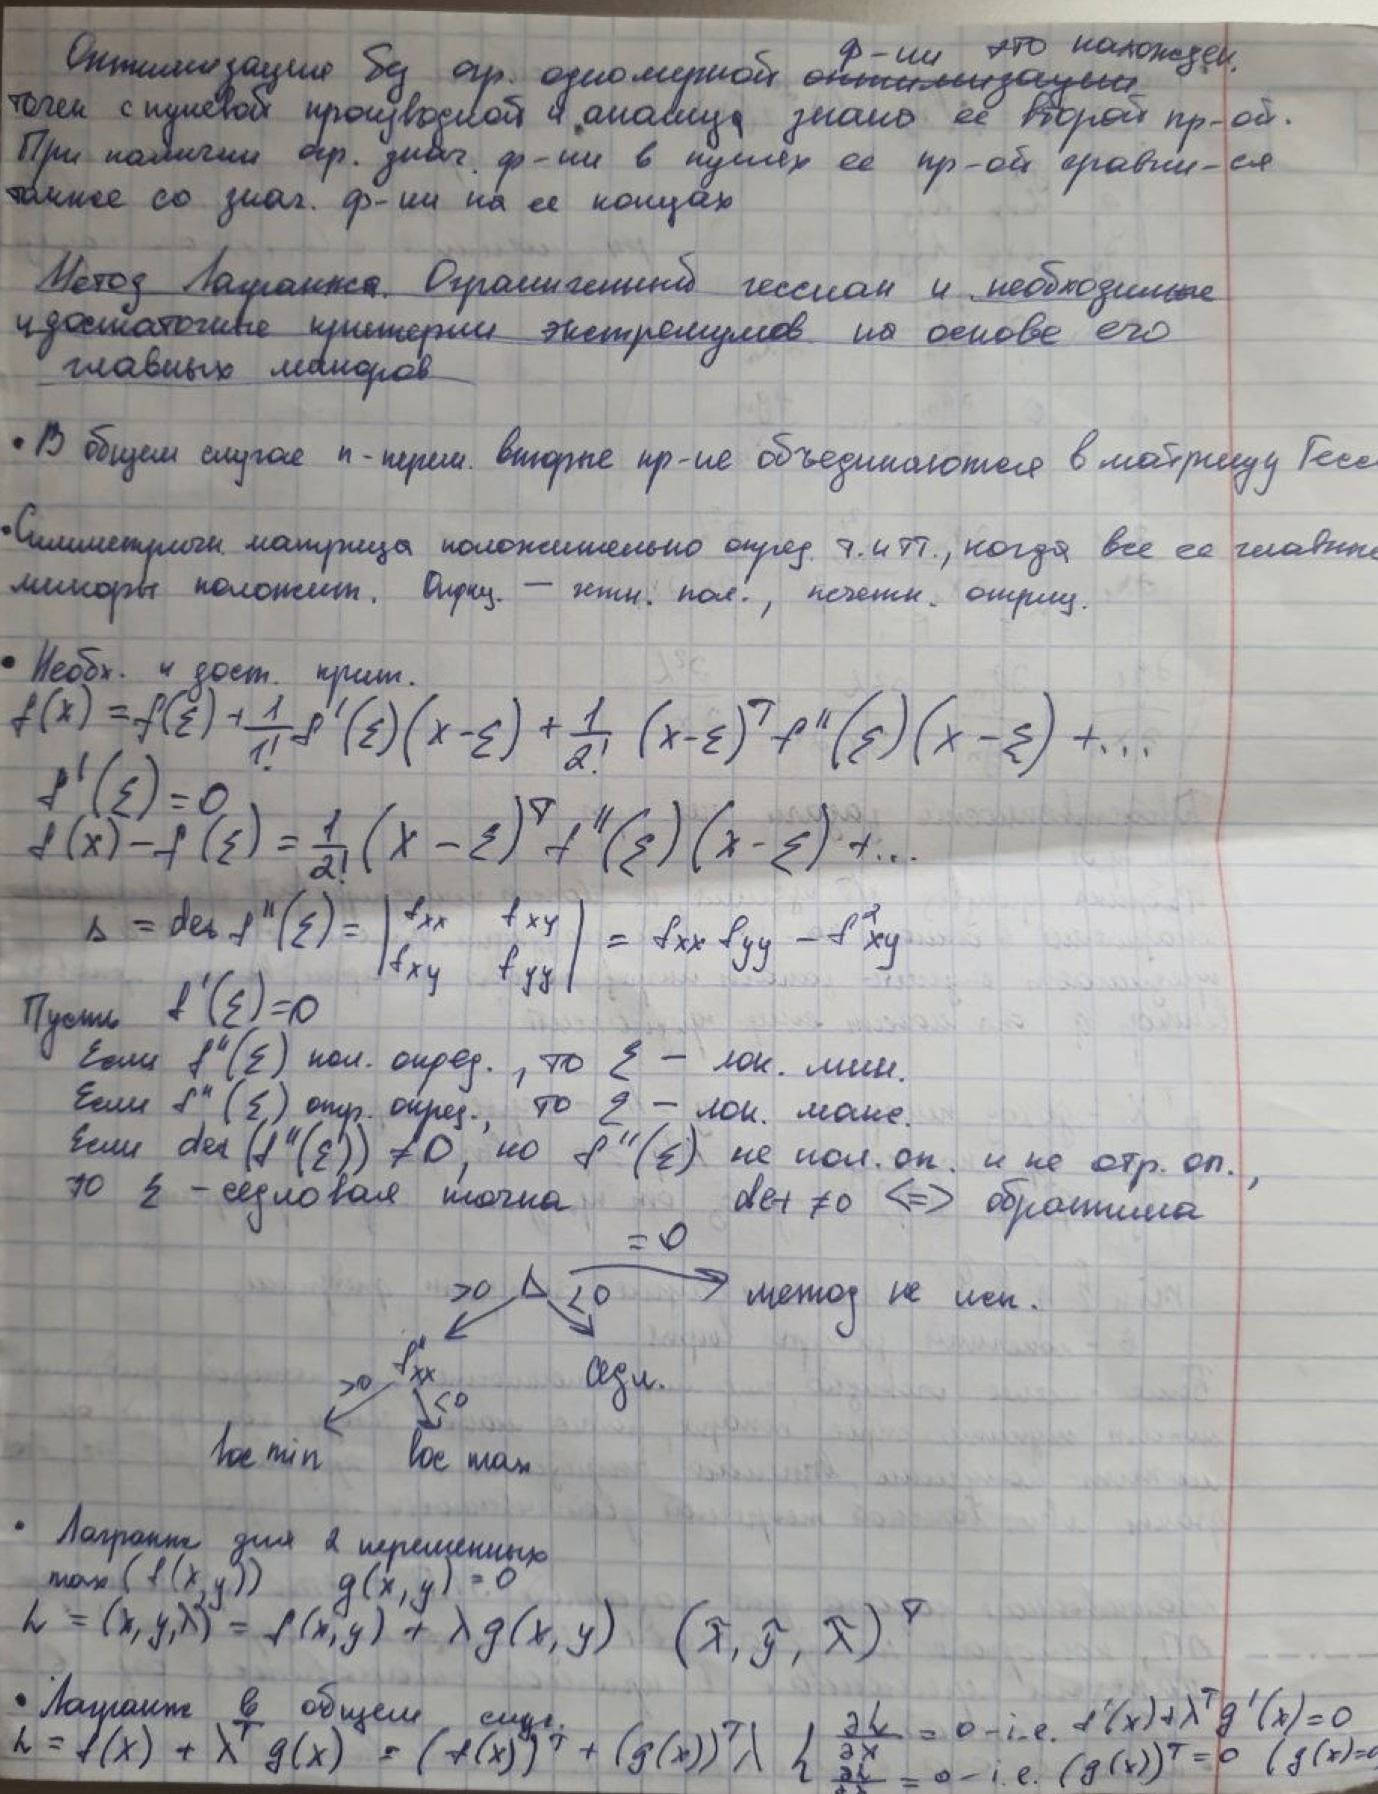 Оптимизация без огр. одномерной ф-ии это нахожден.
точек с нулевой производной и анализ знака её второй пр-ой.
При наличии огр. знач. ф-ии в нулях её пр-ой сравни-ся
также со знач. ф-ии на её концах
Метод Лагранжа. Ограниченный гессиан и необходимые
и достаточные критерии экстремумов на основе его
главных миноров
• В общем случае n-перем. вторые пр-ые объединяются в матрицу Гесс
• Симметричн. матрица положительно опред. т. и т.т., когда все её главные
миноры положит. Отриц. — четн. пол., нечетн. отриц.
• Необх. и дост. крит.
f(x) = f(ξ) + 1/1! f'(ξ)(x-ξ) + 1/2! (x-ξ)^T f''(ξ)(x-ξ) + ...
f'(ξ) = 0
f(x) - f(ξ) = 1/2! (x-ξ)^T f''(ξ)(x-ξ) + ...
Δ = det f''(ξ) = | fxx fxy | = fxx fyy - f²xy
| fxy fyy |
Пусть f'(ξ)=0
Если f''(ξ) пол. опред., то ξ — лок. мин.
Если f''(ξ) отр. опред., то ξ — лок. макс.
Если det(f''(ξ)) ≠ 0, но f''(ξ) не пол. оп. и не отр. оп.,
то ξ - седловая точка det ≠ 0 <=> обратима
= 0
>0 Δ <0 → метод не исп.
f''xx седл.
>0 <0
loc min loc max
• Лагранж для 2 переменных
max (f(x,y)) g(x,y) = 0
L = (x,y,λ) = f(x,y) + λg(x,y) (x̄, ȳ, λ̄)^T
• Лагранж в общем случ.
L = f(x) + λ^T g(x) = (f(x))^T + (g(x))^T λ { ∂L/∂x = 0 - i.e. f'(x)+λ^T g'(x)=0
∂L/∂λ = 0 - i.e. (g(x))^T = 0 (g(x)=0